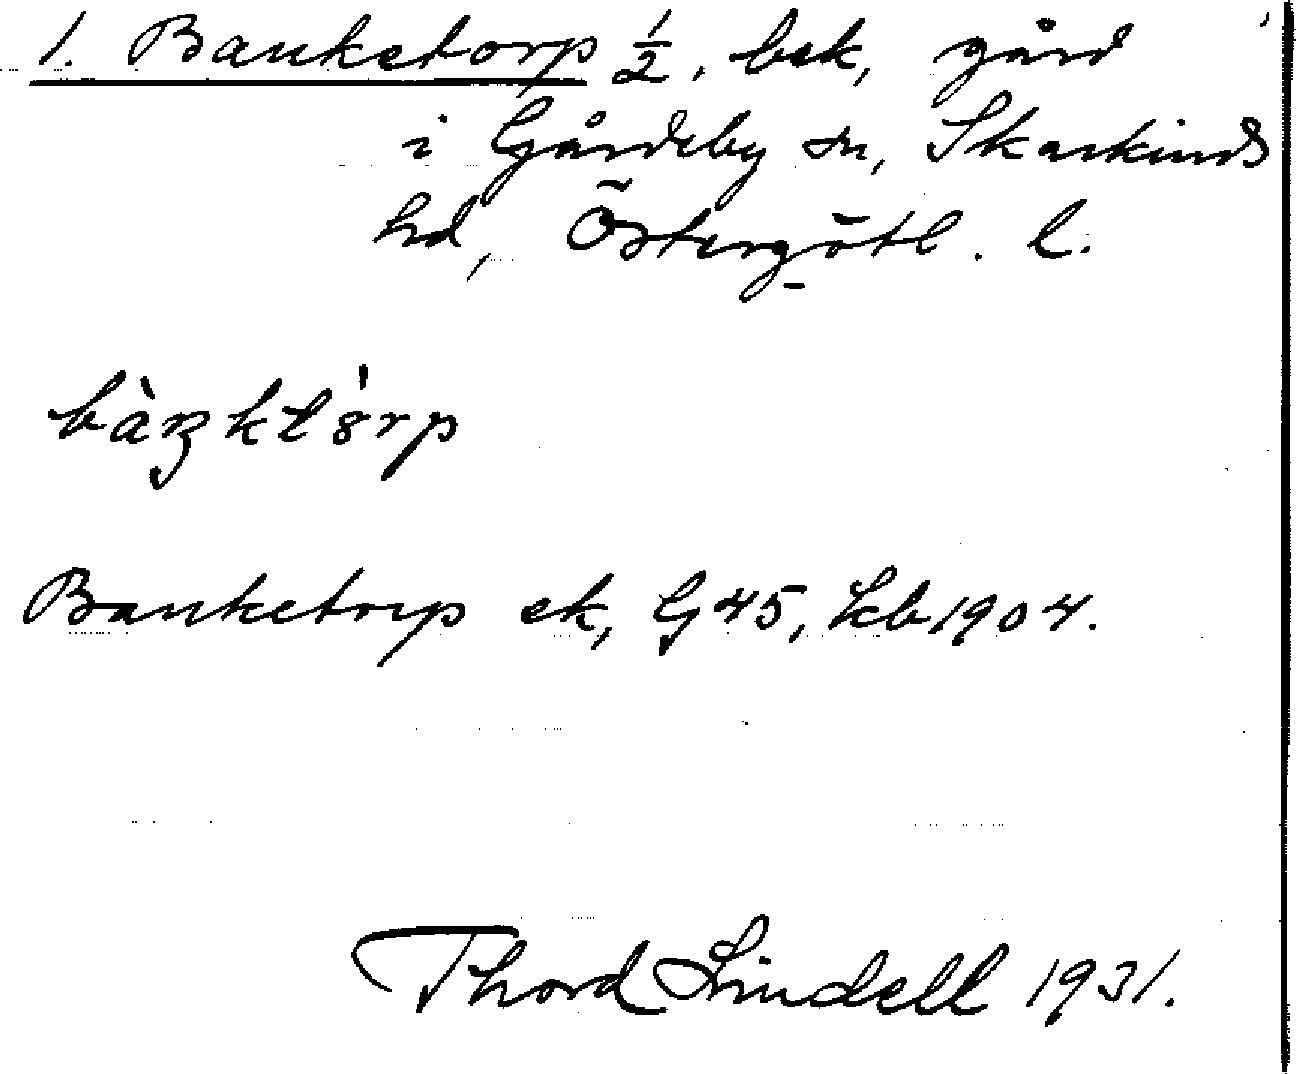 1. Banketorp ½, bek, gård
i Gårdeby sn, Skärkinds
hd, Östergötl. l.
bàŋktå̍rp
Banketorp ek, G45, kb 1904.
Thord Lindell 1931.